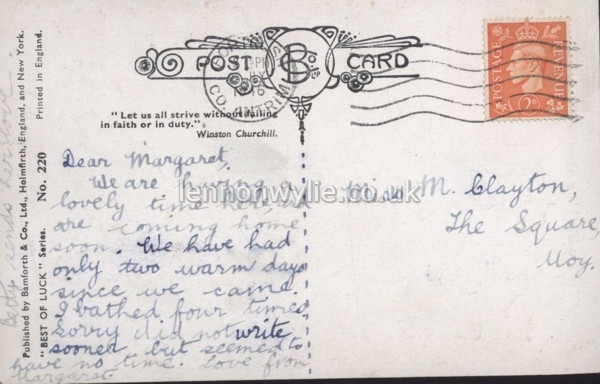 POST CARD
B & Co LTD
CO. ANTRIM
POSTAGE REVENUE
2D
"Let us all strive without failing
in faith or in duty."
Winston Churchill.
Dear Margaret,
We are having a
lovely time here,
are coming home
soon. We have had
only two warm days
since we came.
I bathed four times
Sorry did not write
sooner but seemed to
have no time. Love from
Margaret
Miss M. Clayton,
The Square,
Moy.
Betty sends her love
Published by Bamforth & Co., Ltd., Holmfirth, England, and New York.
Printed in England.
"BEST OF LUCK" Series. No. 220
lennonwylie.co.uk